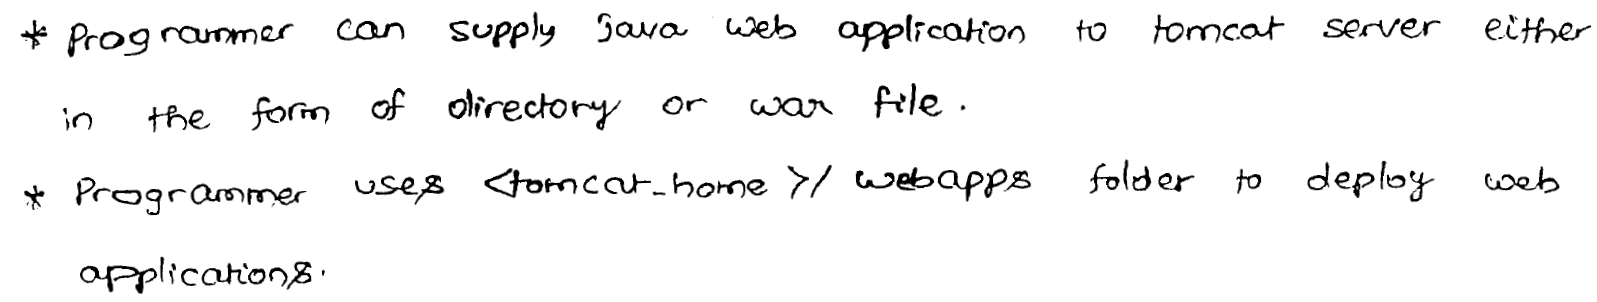 * Programmer can supply java web application to tomcat server either
in the form of directory or war file.
* Programmer uses <tomcat_home>/ webapps folder to deploy web
applications.